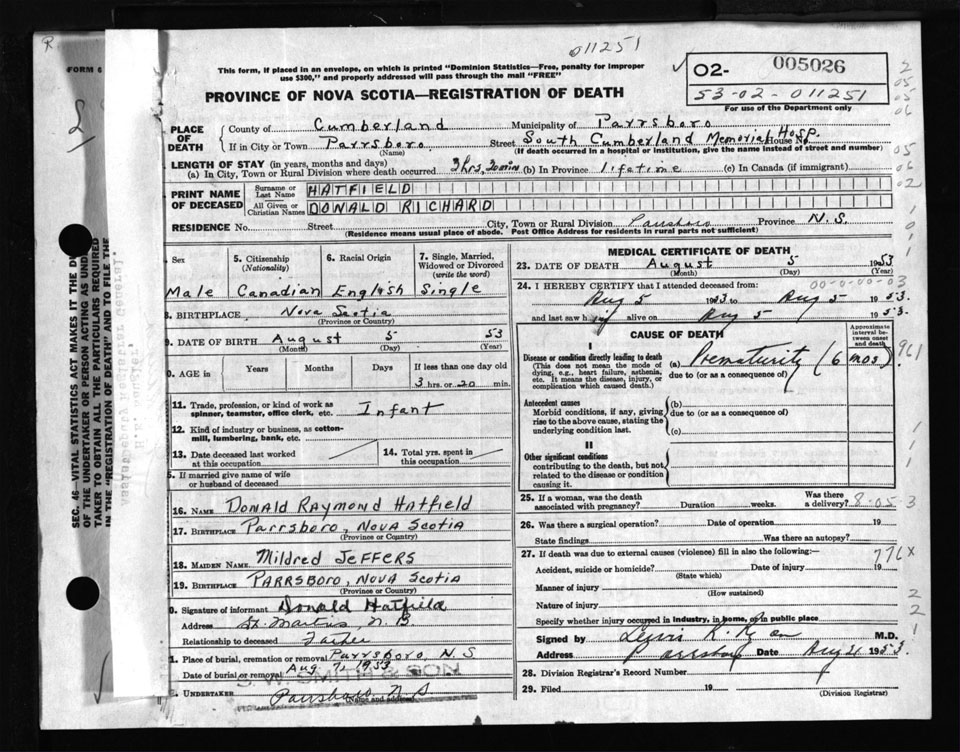 011251
R
FORM 6
This form, if placed in an envelope, on which is printed "Dominion Statistics—Free, penalty for improper
use $300," and properly addressed will pass through the mail "FREE"
02- 005026
53-02-011251
For use of the Department only
PROVINCE OF NOVA SCOTIA—REGISTRATION OF DEATH
PLACE OF DEATH
County of Cumberland Municipality of Parrsboro
If in City or Town Parrsboro Street South Cumberland Memorial Hosp. House No
(Name) (If death occurred in a hospital or institution, give the name instead of street and number)
LENGTH OF STAY (in years, months and days)
(a) In City, Town or Rural Division where death occurred 3 hrs, 20 min (b) In Province lifetime (c) In Canada (if immigrant)
PRINT NAME OF DECEASED
Surname or Last Name HATFIELD
All Given or Christian Names DONALD RICHARD
RESIDENCE No. Street City, Town or Rural Division Parrsboro Province N.S.
(Residence means usual place of abode. Post Office Address for residents in rural parts not sufficient)
Sex Male
5. Citizenship (Nationality) Canadian
6. Racial Origin English
7. Single, Married, Widowed or Divorced (write the word) Single
8. BIRTHPLACE Nova Scotia
(Province or Country)
9. DATE OF BIRTH August 5 53
(Month) (Day) (Year)
0. AGE in Years Months Days If less than one day old
3 hrs. or 20 min.
11. Trade, profession, or kind of work as
spinner, teamster, office clerk, etc. Infant
12. Kind of industry or business, as cotton-
mill, lumbering, bank, etc.
13. Date deceased last worked
at this occupation
14. Total yrs. spent in
this occupation
5. If married give name of wife
or husband of deceased
16. NAME Donald Raymond Hatfield
17. BIRTHPLACE Parrsboro, Nova Scotia
(Province or Country)
18. MAIDEN NAME Mildred Jeffers
19. BIRTHPLACE Parrsboro, Nova Scotia
(Province or Country)
0. Signature of informant Donald Hatfield
Address St. Martins, N.B
Relationship to deceased Father
1. Place of burial, cremation or removal Parrsboro N.S
Date of burial or removal Aug. 7, 1953
SMITH & SON
UNDERTAKER Parrsboro N S
(Name and address)
MEDICAL CERTIFICATE OF DEATH
23. DATE OF DEATH August 5 1953
(Month) (Day) (Year)
24. I HEREBY CERTIFY that I attended deceased from:
Aug 5 1953 to Aug 5 1953.
and last saw him alive on Aug 5 1953.
CAUSE OF DEATH
Approximate interval between onset and death
I
Disease or condition directly leading to death
(This does not mean the mode of
dying, e.g., heart failure, asthenia,
etc. It means the disease, injury, or
complication which caused death.)
(a) Prematurity (6 mos).
due to (or as a consequence of)
Antecedent causes
Morbid conditions, if any, giving
rise to the above cause, stating the
underlying condition last.
(b)
due to (or as a consequence of)
(c)
II
Other significant conditions
contributing to the death, but not
related to the disease or condition
causing it.
25. If a woman, was the death
associated with pregnancy? Duration weeks. Was there
a delivery? 8-05-3
26. Was there a surgical operation? Date of operation 19
State findings Was there an autopsy?
27. If death was due to external causes (violence) fill in also the following:
776X
Accident, suicide or homicide? Date of injury 19
(State which)
Manner of injury
(How sustained)
Nature of injury
Specify whether injury occurred in industry, in home, or in public place
Signed by Lewis R. Ryan M.D.
Address Parrsboro Date Aug 21 1953.
28. Division Registrar's Record Number
29. Filed 19
(Division Registrar)
SEC. 46—VITAL STATISTICS ACT MAKES IT THE DU
OF THE UNDERTAKER OR PERSON ACTING AS UND
TAKER TO OBTAIN ALL THE PARTICULARS REQUIRED
IN THE "REGISTRATION OF DEATH" AND TO FILE THE